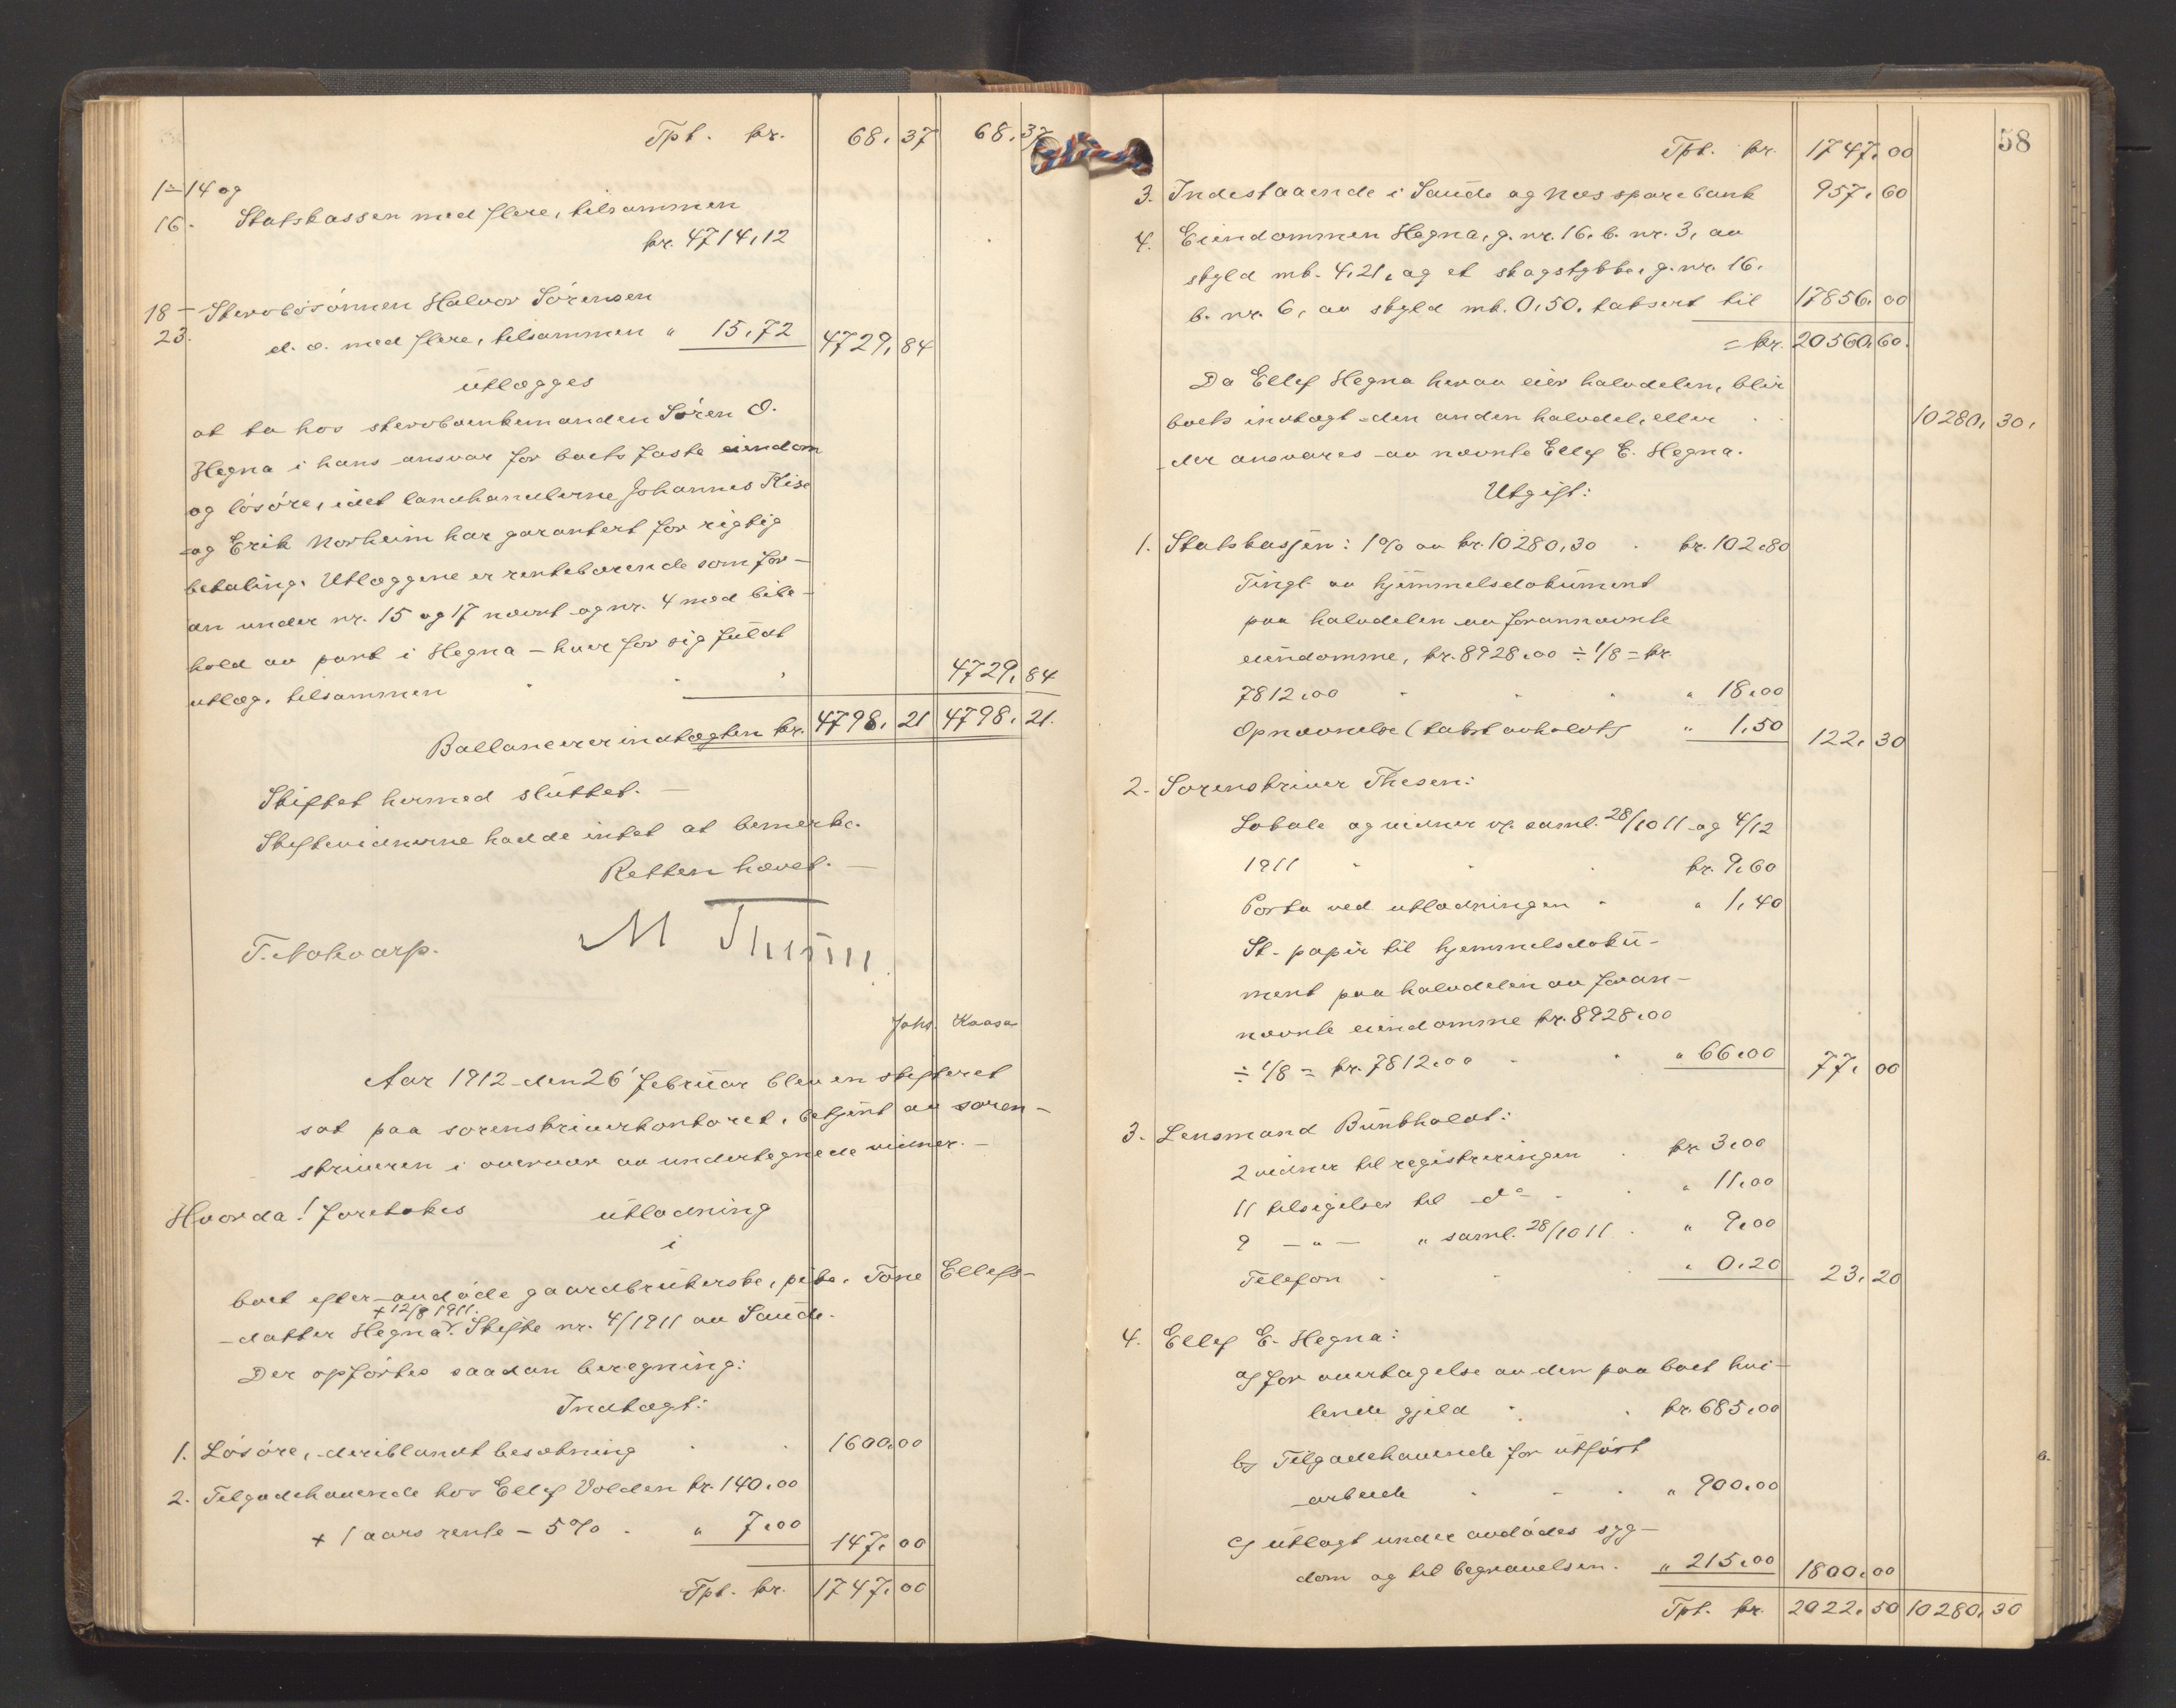 Tpt. kr. 68,37 68,37
1-14 og
16. Statskassen med flere, tilsammen
kr. 4714,12
18- Stervbosönnen Halvor Sörensen
23. d. o. med flere, tilsammen " 15,72 4729,84
utlægges
at ta hos stervboenkemanden Sören O.
Hegna i hans ansvar for boets faste eiendom
og lösöre, idet landhandlerne Johannes Kise
og Erik Norheim har garantert for rigtig
betaling. Utlæggene er rentebærende som for-
an under nr. 15 og 17 nævnt og nr. 4 med bibe-
hold av pant i Hegna - hver for sig fuldt
utlæg, tilsammen 4729,84
Ballancerer indtægten kr. 4798,21 4798,21.
Skiftet hermed sluttet. -
Skiftevidnerne hadde intet at bemerke.
Retten hævet. -
M Thesen
Johs. Kaasa
Aar 1912 den 26' februar blev en skifteret
sat paa sorenskriverkontoret, betjent av soren-
skriveren i overvær av undertegnede vidner. -
Hvorda! foretokes utlodning
i
boet efter avdöde gaardbrukerske, pike, Tone Ellefs-
+ 12/8 1911.
datter Hegna. Skifte nr. 4/1911 av Saude.
Der opförtes saadan beregning:
Indtægt:
1. Lösöre, deriblandt besætning 1600,00
2. Tilgodehavende hos Ellef Volden kr. 140,00
+ 1 aars rente - 5% " 7,00 147,00
Tpt. kr. 1747,00
58
Tpt. kr. 1747,00
3. Indestaaende i Saude og Nes sparebank 957,60
4. Eiendommen Hegna, g. nr. 16, b. nr. 3, av
skyld mk. 4,21, og et skogstykke, g. nr. 16,
b. nr. 6, av skyld mk. 0,50, taksert til 17856,00
= kr. 20560,60.
Da Ellef Hegna herav eier halvdelen, blir
boets indtægt den anden halvdel, eller 10280,30,
der ansvares av nævnte Ellef E. Hegna.
Utgift:
1. Statskassen: 1% av kr. 10280,30 kr. 102,80
Tingl. av hjemmelsdokument
paa halvdelen av forannævnte
eiendomme, kr. 8928,00 ÷ 1/8 = kr.
7812,00 " 18,00
Opnævnelse (takst avholdt) " 1,50 122,30
2. Sorenskriver Thesen:
Lokale og vidner v. saml. 28/10 11 og 4/12
1911 kr. 9,60
Porto ved utlodningen " 1,40
St. papir til hjemmelsdoku-
ment paa halvdelen av foran-
nævnte eiendomme kr. 8928,00
÷ 1/8 = kr. 7812,00 " 66,00 77,00
3. Lensmand Bunkholdt:
2 vidner til registreringen kr. 3,00
11 tilsigelser til do " 11,00
9 - " - " saml. 28/10 11 " 9,00
Telefon " 0,20 23,20
4. Ellef E. Hegna:
a) for overtagelse av den paa boet hvi-
lende gjeld kr. 685,00
b) Tilgodehavende for utført
arbeide " 900,00
c) utlagt under avdödes syg-
dom og til begravelsen. " 215,00 1800,00
Tpt. kr. 2022,50 10280,30